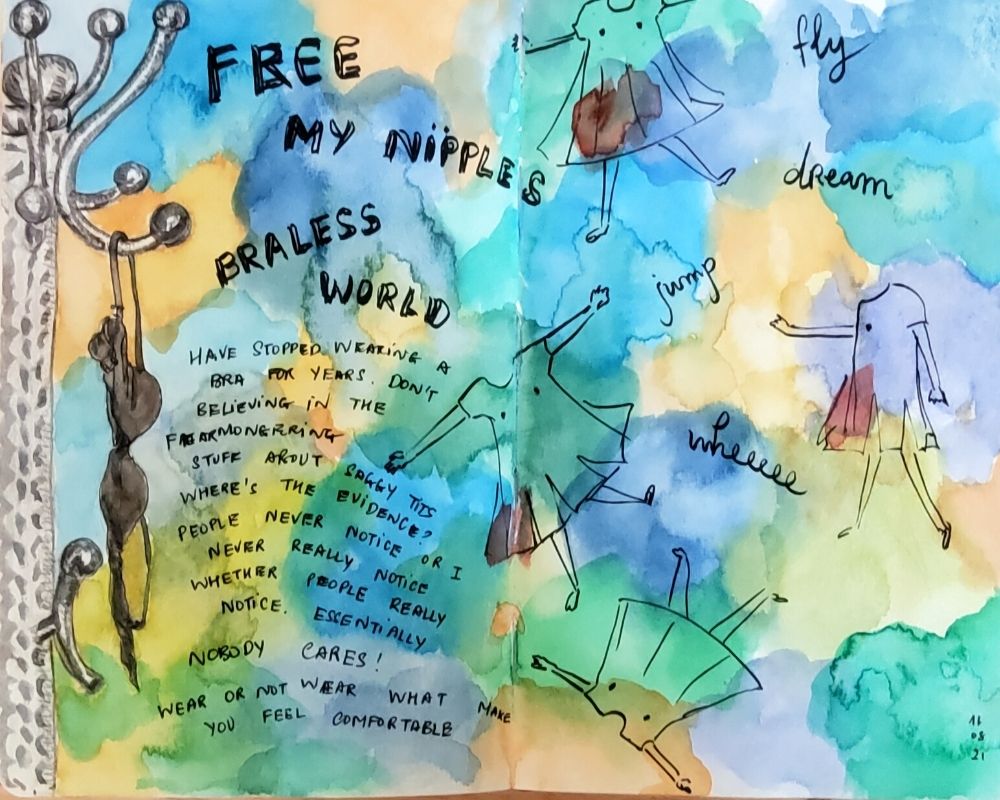 FREE
MY NIPPLES
BRALESS
WORLD
HAVE STOPPED WEARING A
BRA FOR YEARS. DON'T
BELIEVING IN THE
FEARMONGERING
STUFF ABOUT SAGGY TITS
WHERE'S THE EVIDENCE?
PEOPLE NEVER NOTICE OR I
NEVER REALLY NOTICE
WHETHER PEOPLE REALLY
NOTICE. ESSENTIALLY
NOBODY CARES!
WEAR OR NOT WEAR WHAT MAKE
YOU FEEL COMFORTABLE
fly
dream
jump
wheeeee
11
08
21